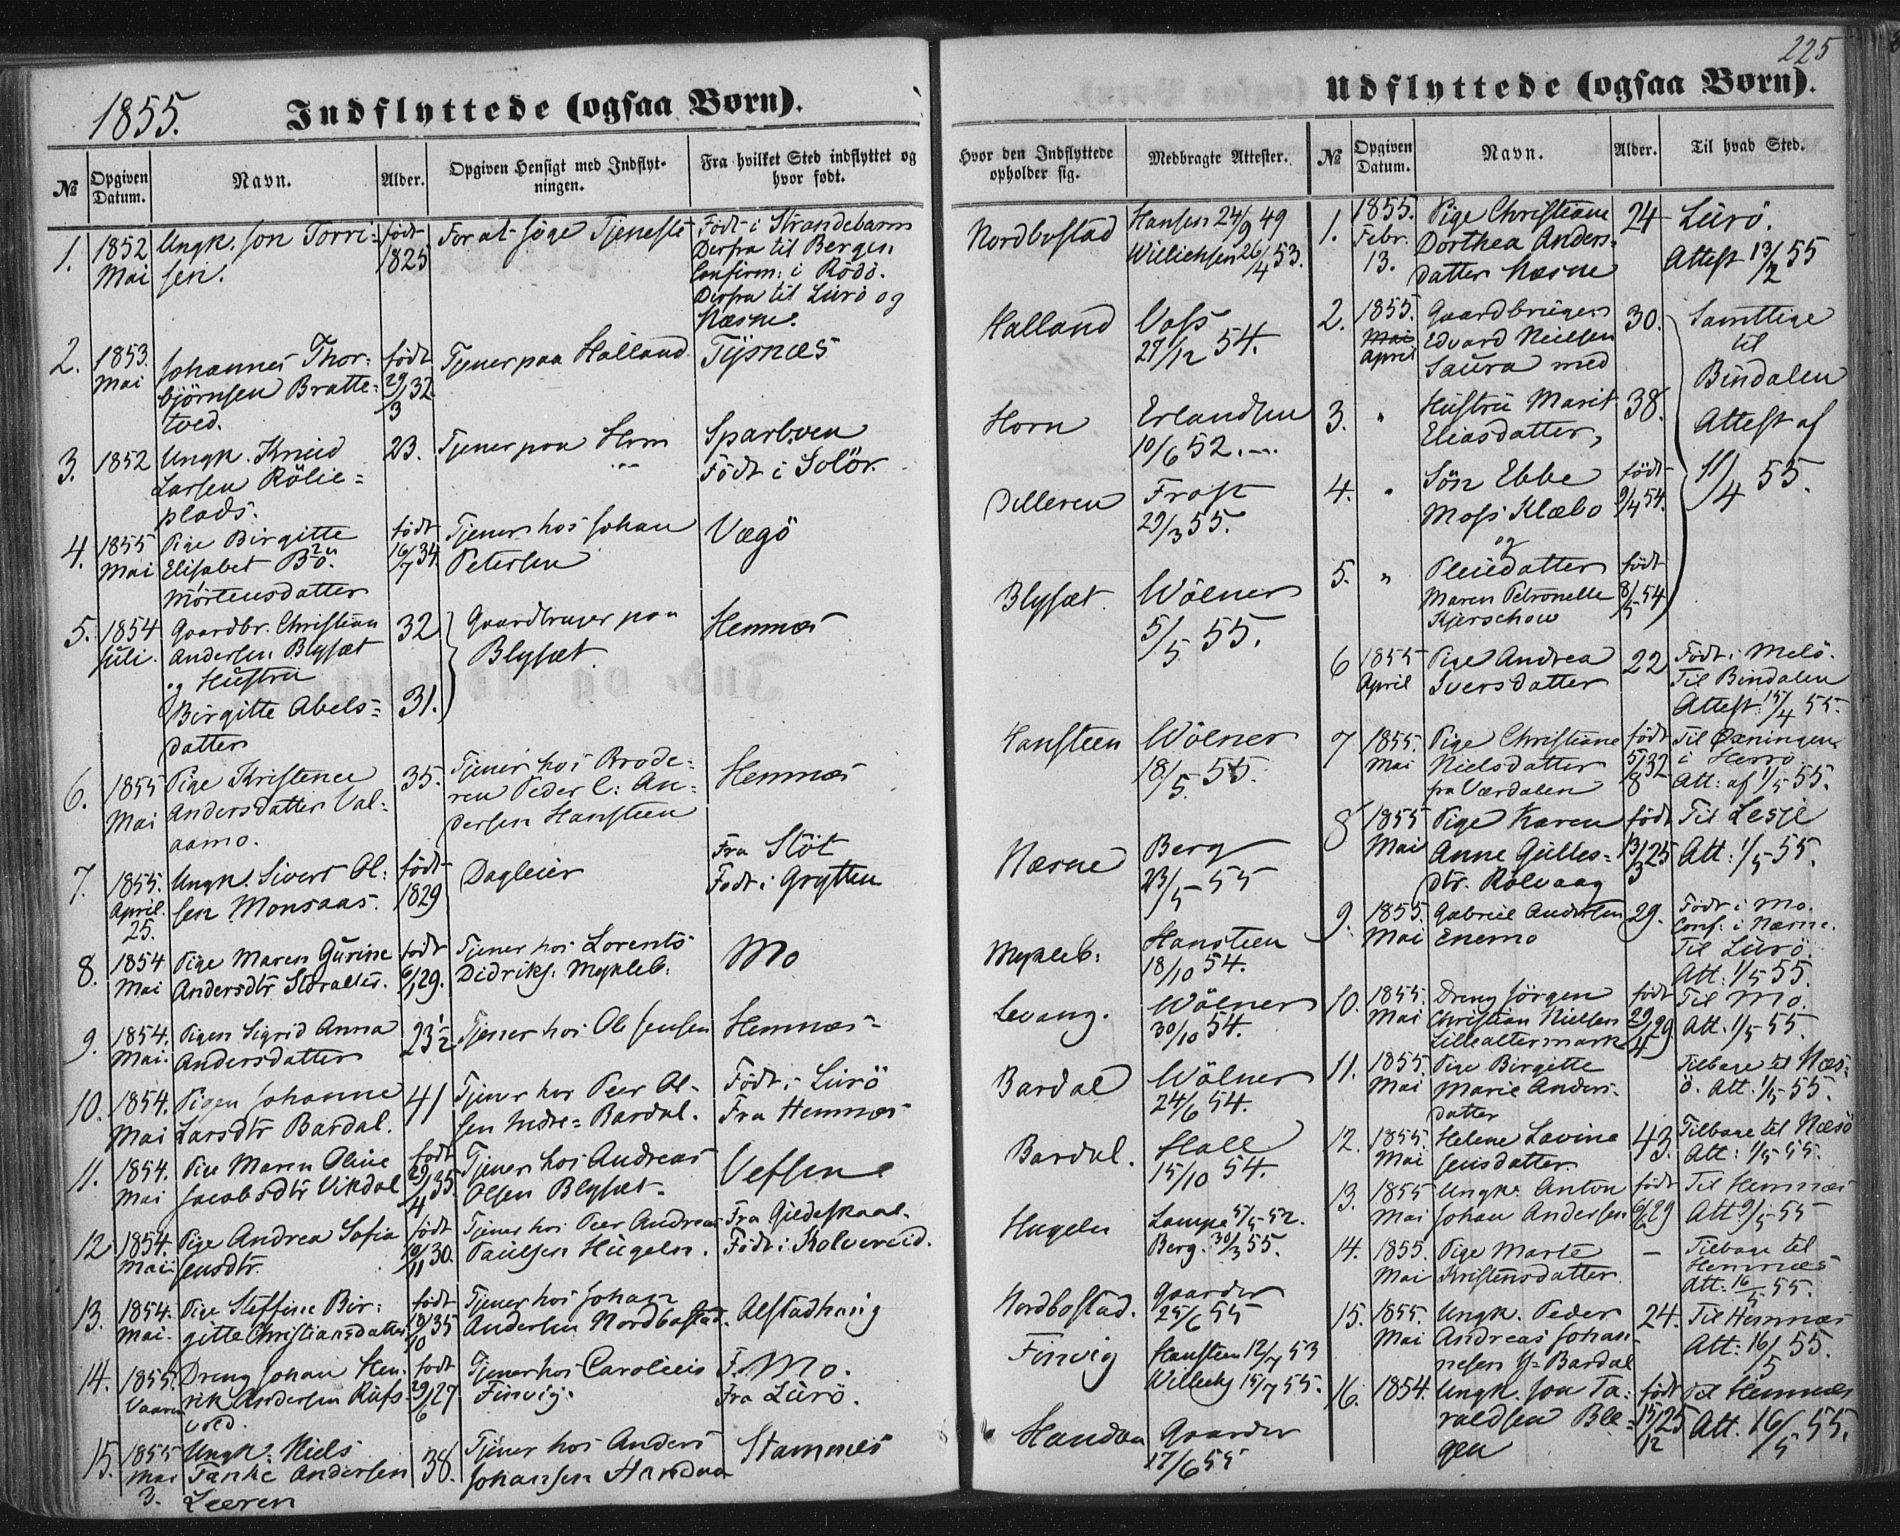 225
1855.
Indflyttede (ogsaa Børn).
№
Opgiven Datum.
Navn.
Alder.
Opgiven Hensigt med Indflyt-
ningen.
Fra hvilket Sted indflyttet og
hvor født.
Hvor den Indflyttede
opholder sig.
Medbragte Attester.
1.
1852
Mai
Ungk. Jon Torri-
sen.
født
1825
For at søge Tjeneste
Født i Strandebarm
Derfra til Bergen
Confirm: i Rödö.
Derfra til Lurö og
Næsne.
Nordbostad
Hansen 24/9 49
26/4 53.
2.
1853.
Mai
Johannes Thor-
bjørnsen Bratte-
tved.
født
29/3 32
Tjener paa Halland
Tysnæs
Halland
Voss
27/12 54.
3.
1852
Ungk. Knud
Larsen Rölie-
plads.
23.
Tjener paa Horn
Sparboen
Født i Solör.
Horn
Erlandsen
10/6 52.
4.
1855
Mai
Pige Birgitte
Elisabet
Mörtensdatter
født
16/7 34.
Tjener hos Johan
Petersen
Vægö
Dilleren
Frost
29/3 55.
5.
1854
Juli.
Gaardbr. Christian
Andersen Blysæt
og Hustru
Birgitte Abels-
datter
32
31.
Gaardbruger paa
Blysæt.
Hemnæs
Blysæt.
Wölner
5/5 55.
6.
1855
Mai
Pige Kristence
Andersdatter Val-
aamo.
35.
Tjener hos Brode-
ren Peder C: An-
dersen Hansteen
Hemnæs
Hansteen
Wölner
18/5. 55.
7.
1855.
April.
25.
Ungk. Sivert Ol-
sen Monsaas.
født
1829
Dagleier
Fra Stöt
Født i Grytten
Næsne
Berg
23/5 55
8.
1854
Mai
Pige Maren Gurine
Andersdtr Storalter.
født
6/1 29.
Tjener hos Lorents
Didriks: Mykleb:
Mo
Mykleb:
Hansteen
18/10 54.
9.
1854.
Mai.
Pigen Sigrid Anna
Andersdatter
23½
Tjener hos Ole Jensen
Hemnæs
Levang.
Wölner
30/10 54.
10.
1854.
Mai
Pigen Johanne
Larsdtr Bardal.
41
Tjener hos Peer Ol-
sen Indre= Bardal.
Født i Lurö
Fra Hemnæs
Bardal
Wölner
24/6 54.
11.
1854.
Mai
Pige Maren Oline
Jacobsdtr Vikdal
født
29/4 35.
Tjener hos Andreas
Olsen Blysæt.
Vefsen
Bardal.
Hall
15/10 54.
12.
1854.
Mai
Pige Andrea Sofia
Jensdtr.
født
10/11 30.
Tjener hos Peer Andreas
Paulsen Hugeln.
Fra Gildeskaal.
Født i Kolvereid.
Hugeln
Lampe 5/5 52.
Berg. 30/3 55.
13.
1854.
Mai.
Pige Steffine Bir-
gitte Christiansdatter
født
19/10 35
Tjener hos Johan
Andersen Nordbostad.
Alstadhaug
Nordbostad.
Gaarder
25/6 55
14.
1855.
Vaaren
Dreng Johan Hen-
rik Andersen Rufs-
vold.
født
29/6 27
Tjener hos
Finvig.
F. Mo.
Fra Lurö.
Finvig
Hansteen 12/7 53
15/7 55.
15.
1855
Mai
3.
Ungk. Niels
Tanke Andersen
Leeren
38.
Tjener hos Anders
Johansen Handna
Stamnes
Gaarder
17/6 55
Udflyttede (ogsaa Børn).
№
Opgiven Datum.
Navn.
Alder.
Til hvad Sted.
1.
1855.
Febr.
13.
Pige Christiane
Dorthea Anders-
datter Næsne
24
Lurö.
Attest 13/2 55
2.
1855.
Mai
April
Gaardbruger
Edvard Nielsen
Saura med
30.
Samtlige
til
Bindalen
Attest af
11/4 55.
3.
"
Hustru Marit
Eliasdatter,
38.
4.
"
Sön Ebbe
Moss Klæbo
født
9/4 54.
5.
"
og
Pleiedatter
Maren Petronelle
Kjerschow
født
8/5 54
6
1855
April
Pige Andrea
Iversdatter
22
Født i Melö.
Til Bindalen
Attest: 15/4 55.
7
1855.
Mai
Pige Christiane
Nielsdatter
fra Værdalen
født
5/8 32
Til
i Herrö.
Att: af 1/5 55.
8
1855
Mai
Pige Karen
Anne Gulles-
dtr. Rölvaag
født
13/3 25
Til Lesje
Att: 1/5 55.
9.
1855.
Mai
Gabriel Andersen
Enemo
29.
Født i Mo.
Conf: i Næsne.
Til Lurö.
Att: 1/5 55.
10.
1855.
Mai
Dreng Jörgen
Christian Nielsen
Lillealtermark
født
29/4 29
Til Mo.
Att: 1/5 55.
11.
1855.
Mai
Pige Birgitte
Marie Anders-
datter
Tilbage til Næs-
ö. Att: 1/5 55.
12.
1855.
Mai
Helene Lavine
Jensdatter
43.
Tilbage til Næsö
Att: 1/5 55.
13.
1855
Mai
Ungk. Anton
Johan Andersen
født
6/6 29
Til Hemnæs
Att 9/5 55
14.
1855.
Mai
Pige Marte
Kristensdatter.
—
Tilbage til
Hemnæs
Att: 16/5 55.
15.
1855.
Mai
Ungk. Peder
Andreas Johan-
nesen Y= Bardal
24.
Til Hemnæs
Att: 16/5 55.
16.
1854.
Ungk. Jon Ta-
raldsen Ble-
gen
født
15/12 25
Til Hemnæs
Att. 16/5 55.